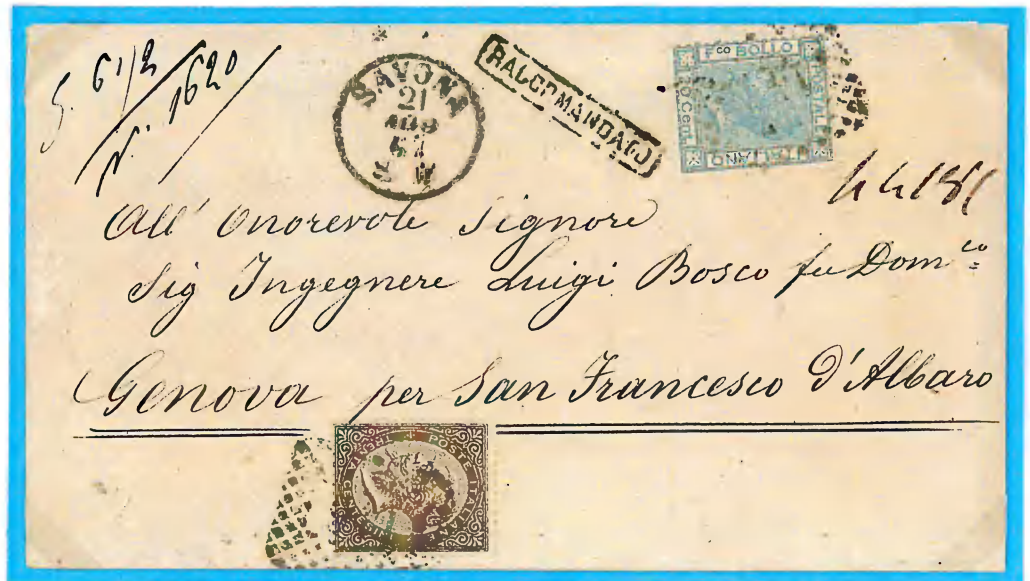 S. 6 1/2
N. 1620
SAVONA
21
AGO
67
RACCOMANDATO
Fco BOLLO
POSTALE
ITALIANO
20 Cent.
All' Onorevole Signore
Sig Ingegnere Luigi Bosco fu Domco
Genova per San Francesco D'Albaro
POSTE ITALIANE
TRENTA CENTESIMI